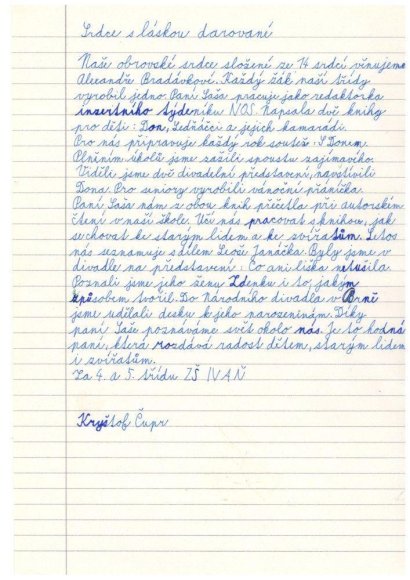 Srdce s láskou darované
Naše obrovské srdce složené ze 14 srdcí věnujeme
Alexandře Bradávkové. Každý žák naší třídy
vyrobil jedno. Paní Saša pracuje jako redaktorka
insertního týdeníku NOS. Napsala dvě knihy
pro děti: Don, Ledňáčci a jejich kamarádi.
Pro nás připravuje každý rok soutěž: S Donem.
Plněním úkolů jsme zažili spoustu zajímavého.
Viděli jsme dvě divadelní představení, navštívili
Dona. Pro seniory vyrobili vánoční přáníčka.
Paní Saša nám z obou knih přečetla při autorském
čtení v naší škole. Učí nás pracovat s knihou, jak
se chovat ke starým lidem a ke zvířatům. Letos
nás seznamuje s dílem Leoše Janáčka. Byly jsme v
divadle na představení: Co ani liška netušila.
Poznali jsme jeho ženu Zdenku i to, jakým
způsobem tvořil. Do Národního divadla v Brně
jsme udělali desku k jeho narozeninám. Díky
paní Saše poznáváme svět okolo nás. Je to hodná
paní, která rozdává radost dětem, starým lidem
i zvířatům.
Za 4. a 5. třídu ZŠ IVAŇ
Kryštof Čupr